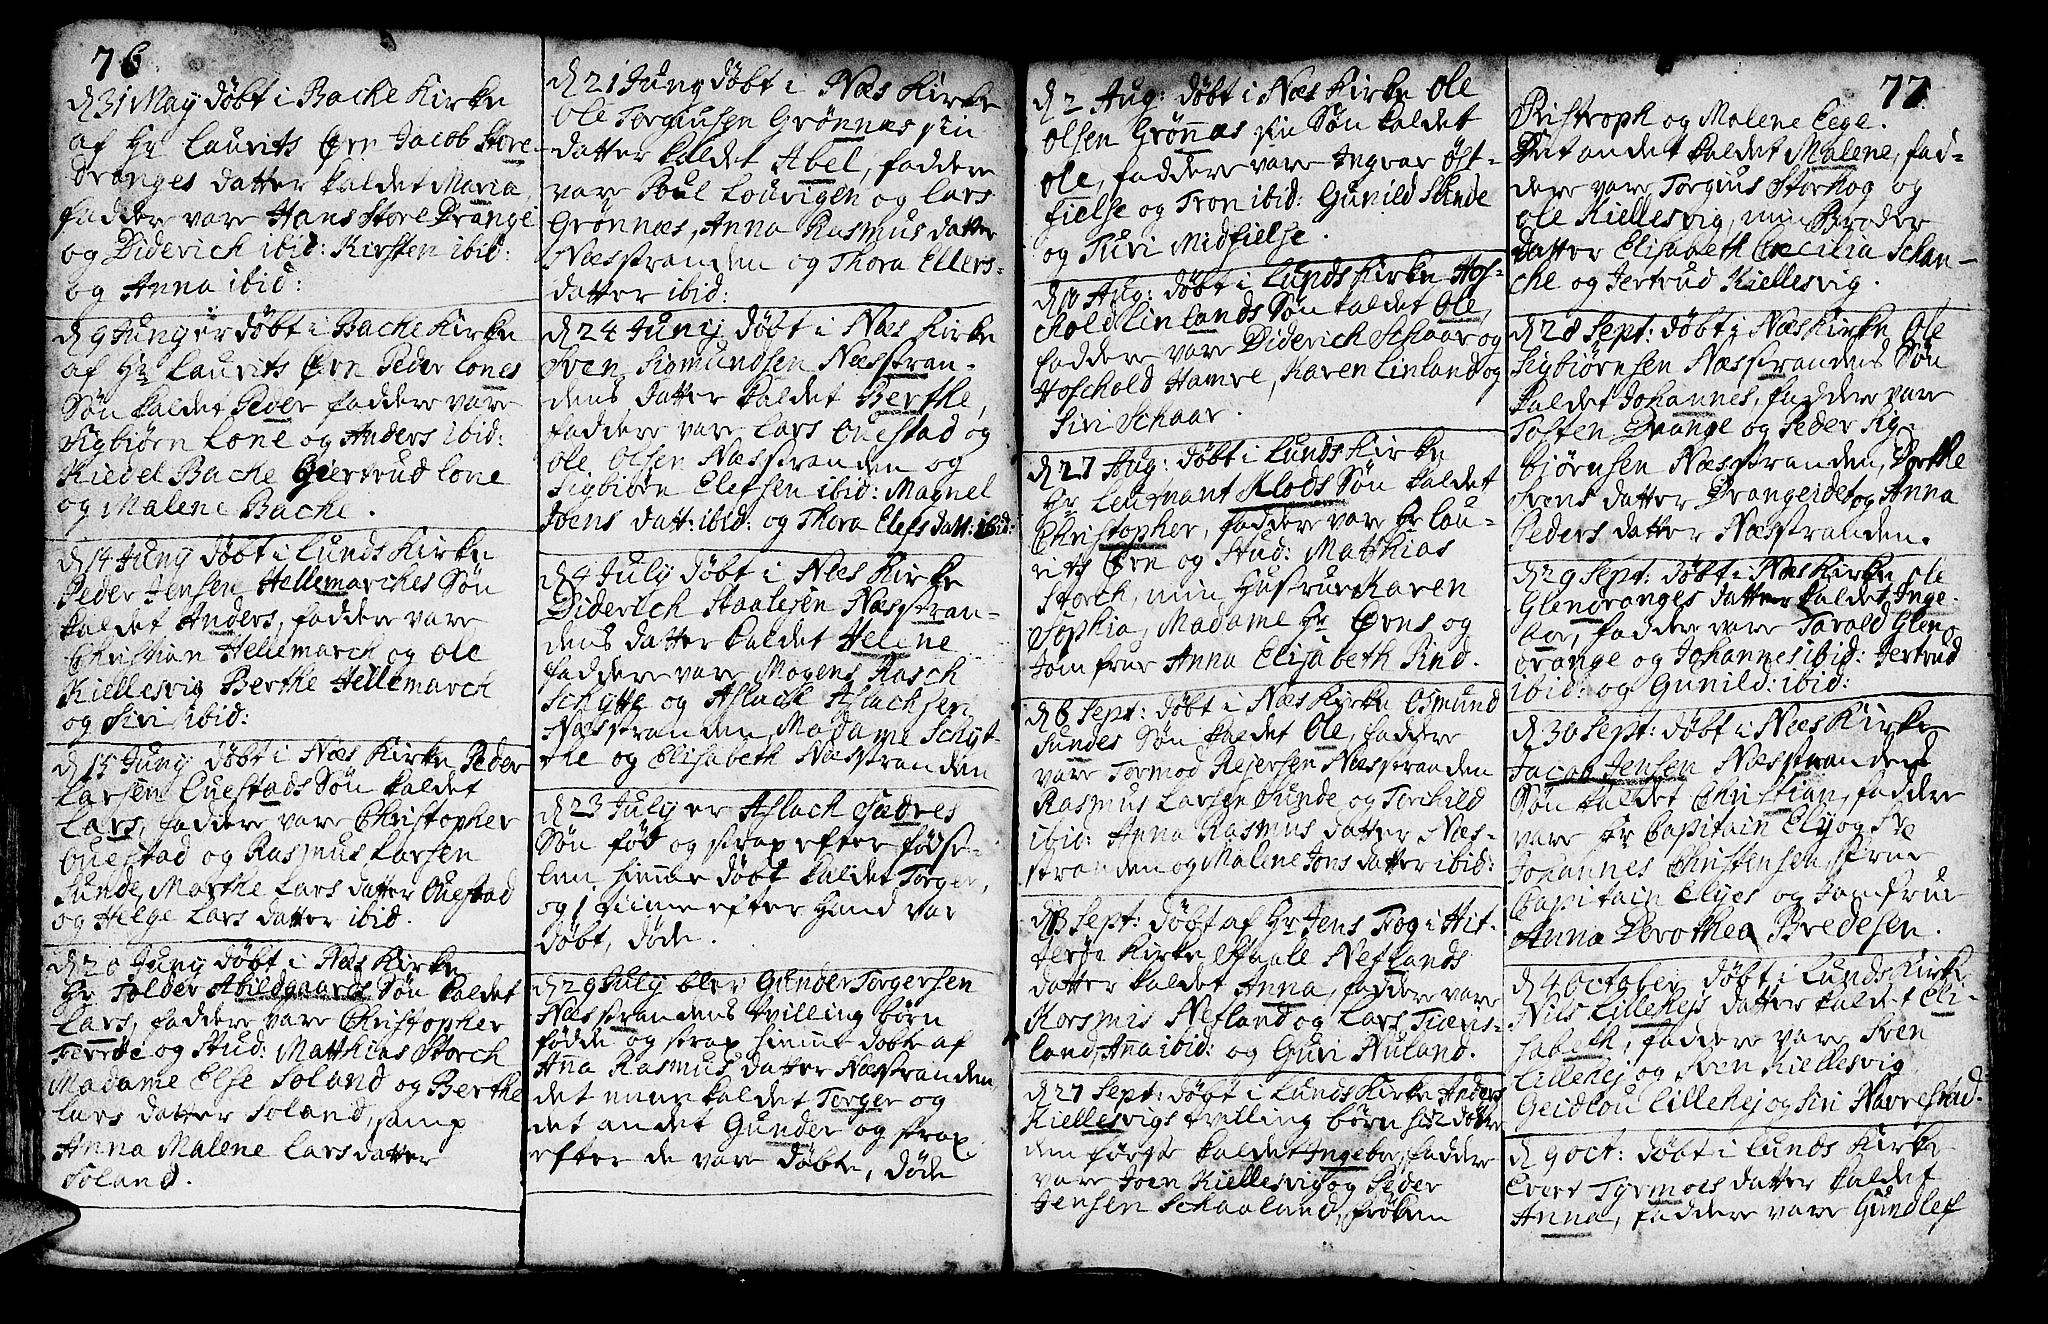 76
d 31 May døbt i Bache Kirke
af Hr Laurits Ørn Jacob Store-
dranges datter kaldet Maria,
faddere vare Hans Store Drange
og Diderich ibid: Kirsten ibid:
og Anna ibid:
d 9 Juny er døbt i Bache Kirke
af Hr Laurits Ørn Peder Lones
Søn kaldet Peder faddere vare
Sigbiørn Lone og Anders ibid:
Kiedel Bache Giertrud Lone
og Malene Bache.
d 14 Juny døbt i Lunds Kirke
Peder Jensen Hellemarches Søn
kaldet Anders, faddere vare
Christian Hellemarch og Ole
Kiellesvig Berthe Hellemarch
og Siri ibid:
d 15 Juny døbt i Næs Kirke Peder
Larsen Ouestads Søn kaldet
Lars, faddere vare Christopher
Ouestad og Rasmus Larsen
Sunde, Marthe Lars datter Ouestad
og Helge Lars datter ibid.
d 20 Juny døbt i Næs Kirke
Hr Tolder Abildgaards Søn kaldet
Lars, faddere vare Christopher
og Stud: Matthias Storch
Madame Else Soland og Berthe
Lars datter Soland, samp
Anna Malene Lars datter
Soland.
d 21 Juny døbt i Næs Kirke
Ole Torgiusen Grønnæs sin
datter kaldet Abel, faddere
vare Poul Louvigen og Lars
Grønnæs, Anna Rasmus datter
Næsstranden og Thora Ellers-
datter ibid:
d 24 Juny døbt i Næs Kirke
Sven Sigmundsen Næsstran-
dens datter kaldet Berthe,
faddere vare Lars Ouestad og
Ole Olsen Næsstranden og
Sigbiørn Elefsen ibid: Magnel
Joens datt: ibid: og Thora Elefs datt: ibid:
d 4 July døbt i Næs Kirke
Diderich Staalesen Næsstran-
dens datter kaldet Helene
faddere vare Mogens Rasch
Schytte og Aslach Aslachsen
Næsstranden Madame Schyt-
the og Elisabeth Næsstranden
d 23 July er Aslach Sædres
Søn fød og strax efter fødse-
len hiemme døbt kaldet Torger,
og 1 time efter hand var
døbt, døde.
d 29 July blev Gunder Torgersen
Næsstrandens tvilling børn
fødde og strax hiemme døbte af
Anna Rasmus datter Næsstranden
det eene kaldet Torger og
det andet Gunder og strax
efter de vare døbte, døde
d 2 Aug: døbt i Næs Kirke Ole
Olsen Grønnæs sin Søn kaldet
Ole, faddere vare Ingvar Øst-
fielse og Tron ibid: Gunild Sunde
og Turi Midfielse.
d 10 Aug: døbt i Lunds Kirke Hos-
chold Linlands Søn kaldet Ole,
faddere vare Diderich Schaar og
Hoschold Hamre, Karen Linland og
Siri Schaar.
d 27 Aug: døbt i Lunds Kirke
Hr Leutnant Klods Søn kaldet
Christopher, faddere vare Hr Lau-
rits Ørn og Stud: Matthias
Storch, min Hustrue Karen
Sophia, Madame Hr Ørns og
Jomfrue Anna Elisabeth Pind.
d 6 Sept: døbt i Næs Kirke Osmund
Sundes Søn kaldet Ole, faddere
vare Tormod Rejersen Næsstranden
Rasmus Larsen Sunde og Torchild
ibid: Anna Rasmus datter Næs-
stranden og Malene Jons datter ibid:
d 13 Sept: døbt af Hr Jens Trog i Hit-
terøe Kirke Staale Neflands
datter kaldet Anna, faddere vare
Korsmis Nefland og Lars
land, Anna ibid: og Guri Nuland.
d 27 Sept: døbt i Lunds Kirke Anders
Kiellesvigs tvilling børn hr 2 døttre
den første kaldet Ingebor, faddere
vare Joen Kiellesvig og Peder
Jensen Schaaland, frøken
77
Pristroph og Malene Eege.
Det andet kaldet Malene, fad-
dere vare Torgius Storhog og
Ole Kiellesvig, min Broder
datter Elisabeth Cæcilia Schan-
che og Jertrud Kiellesvig.
d 28 Sept: døbt i Næs Kirke Ole
Sigbiørnsen Næsstrandens Søn
kaldet Johannes, faddere vare
Tosten Drange og Peder Sig-
bjørnsen Næsstranden, Dorthe
Svens datter Drangeidet og Anna
Peders datter Næsstranden.
d 29 Sept: døbt i Næs Kirke Ole
Glendranges datter kaldet Inge-
bor, faddere vare Tarald Glen-
drange og Johannes ibid: Jertrud
ibid: og Gunild: ibid:
d 30 Sept: døbt i Næs Kirke
Jacob Jensen Næsstrandens
Søn kaldet Christian, faddere
vare Hr Capitain Ely og Sr
Johannes Christensen frue
Capitain Elyes og Jomfrue
Anna Dorothea Bredesen.
d 4 October døbt i Lunds Kirke
Nils Lillehejs datter kaldet Eli-
sabeth, faddere vare Sven
Lillehej og Sven Kiellesvig
Geidlou Lillehej og Siri Navrestad.
d 9 Oct: døbt i Lunds Kirke
Evert Tyrmoes datter kaldet
Anna, faddere vare Gundlef